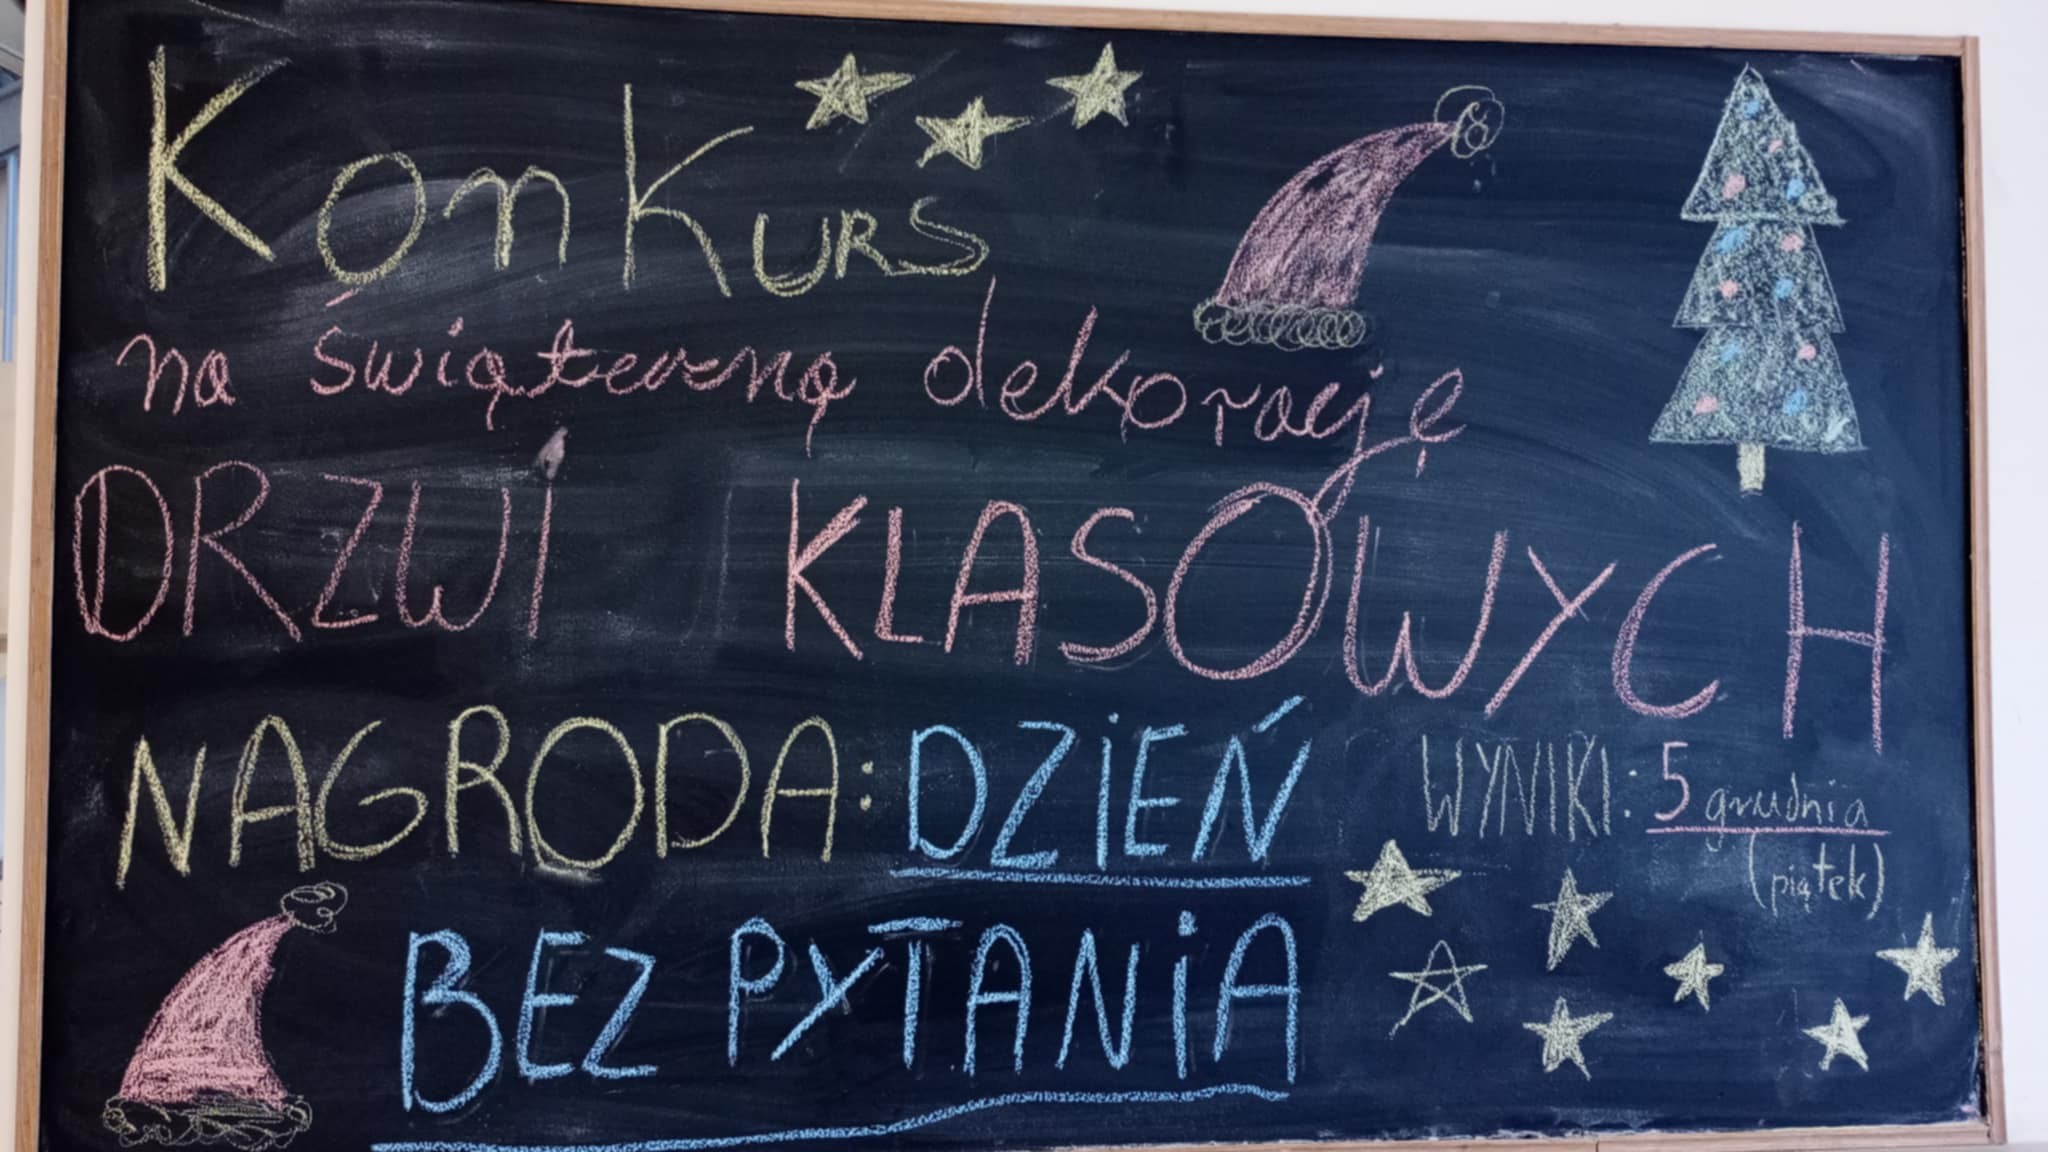 KonKURS
na świąteczną dekorację
DRZWI KLASOWYCH
NAGRODA: DZiEŃ
BEZ PYTANiA
WYNIKI: 5 grudnia
(piątek)